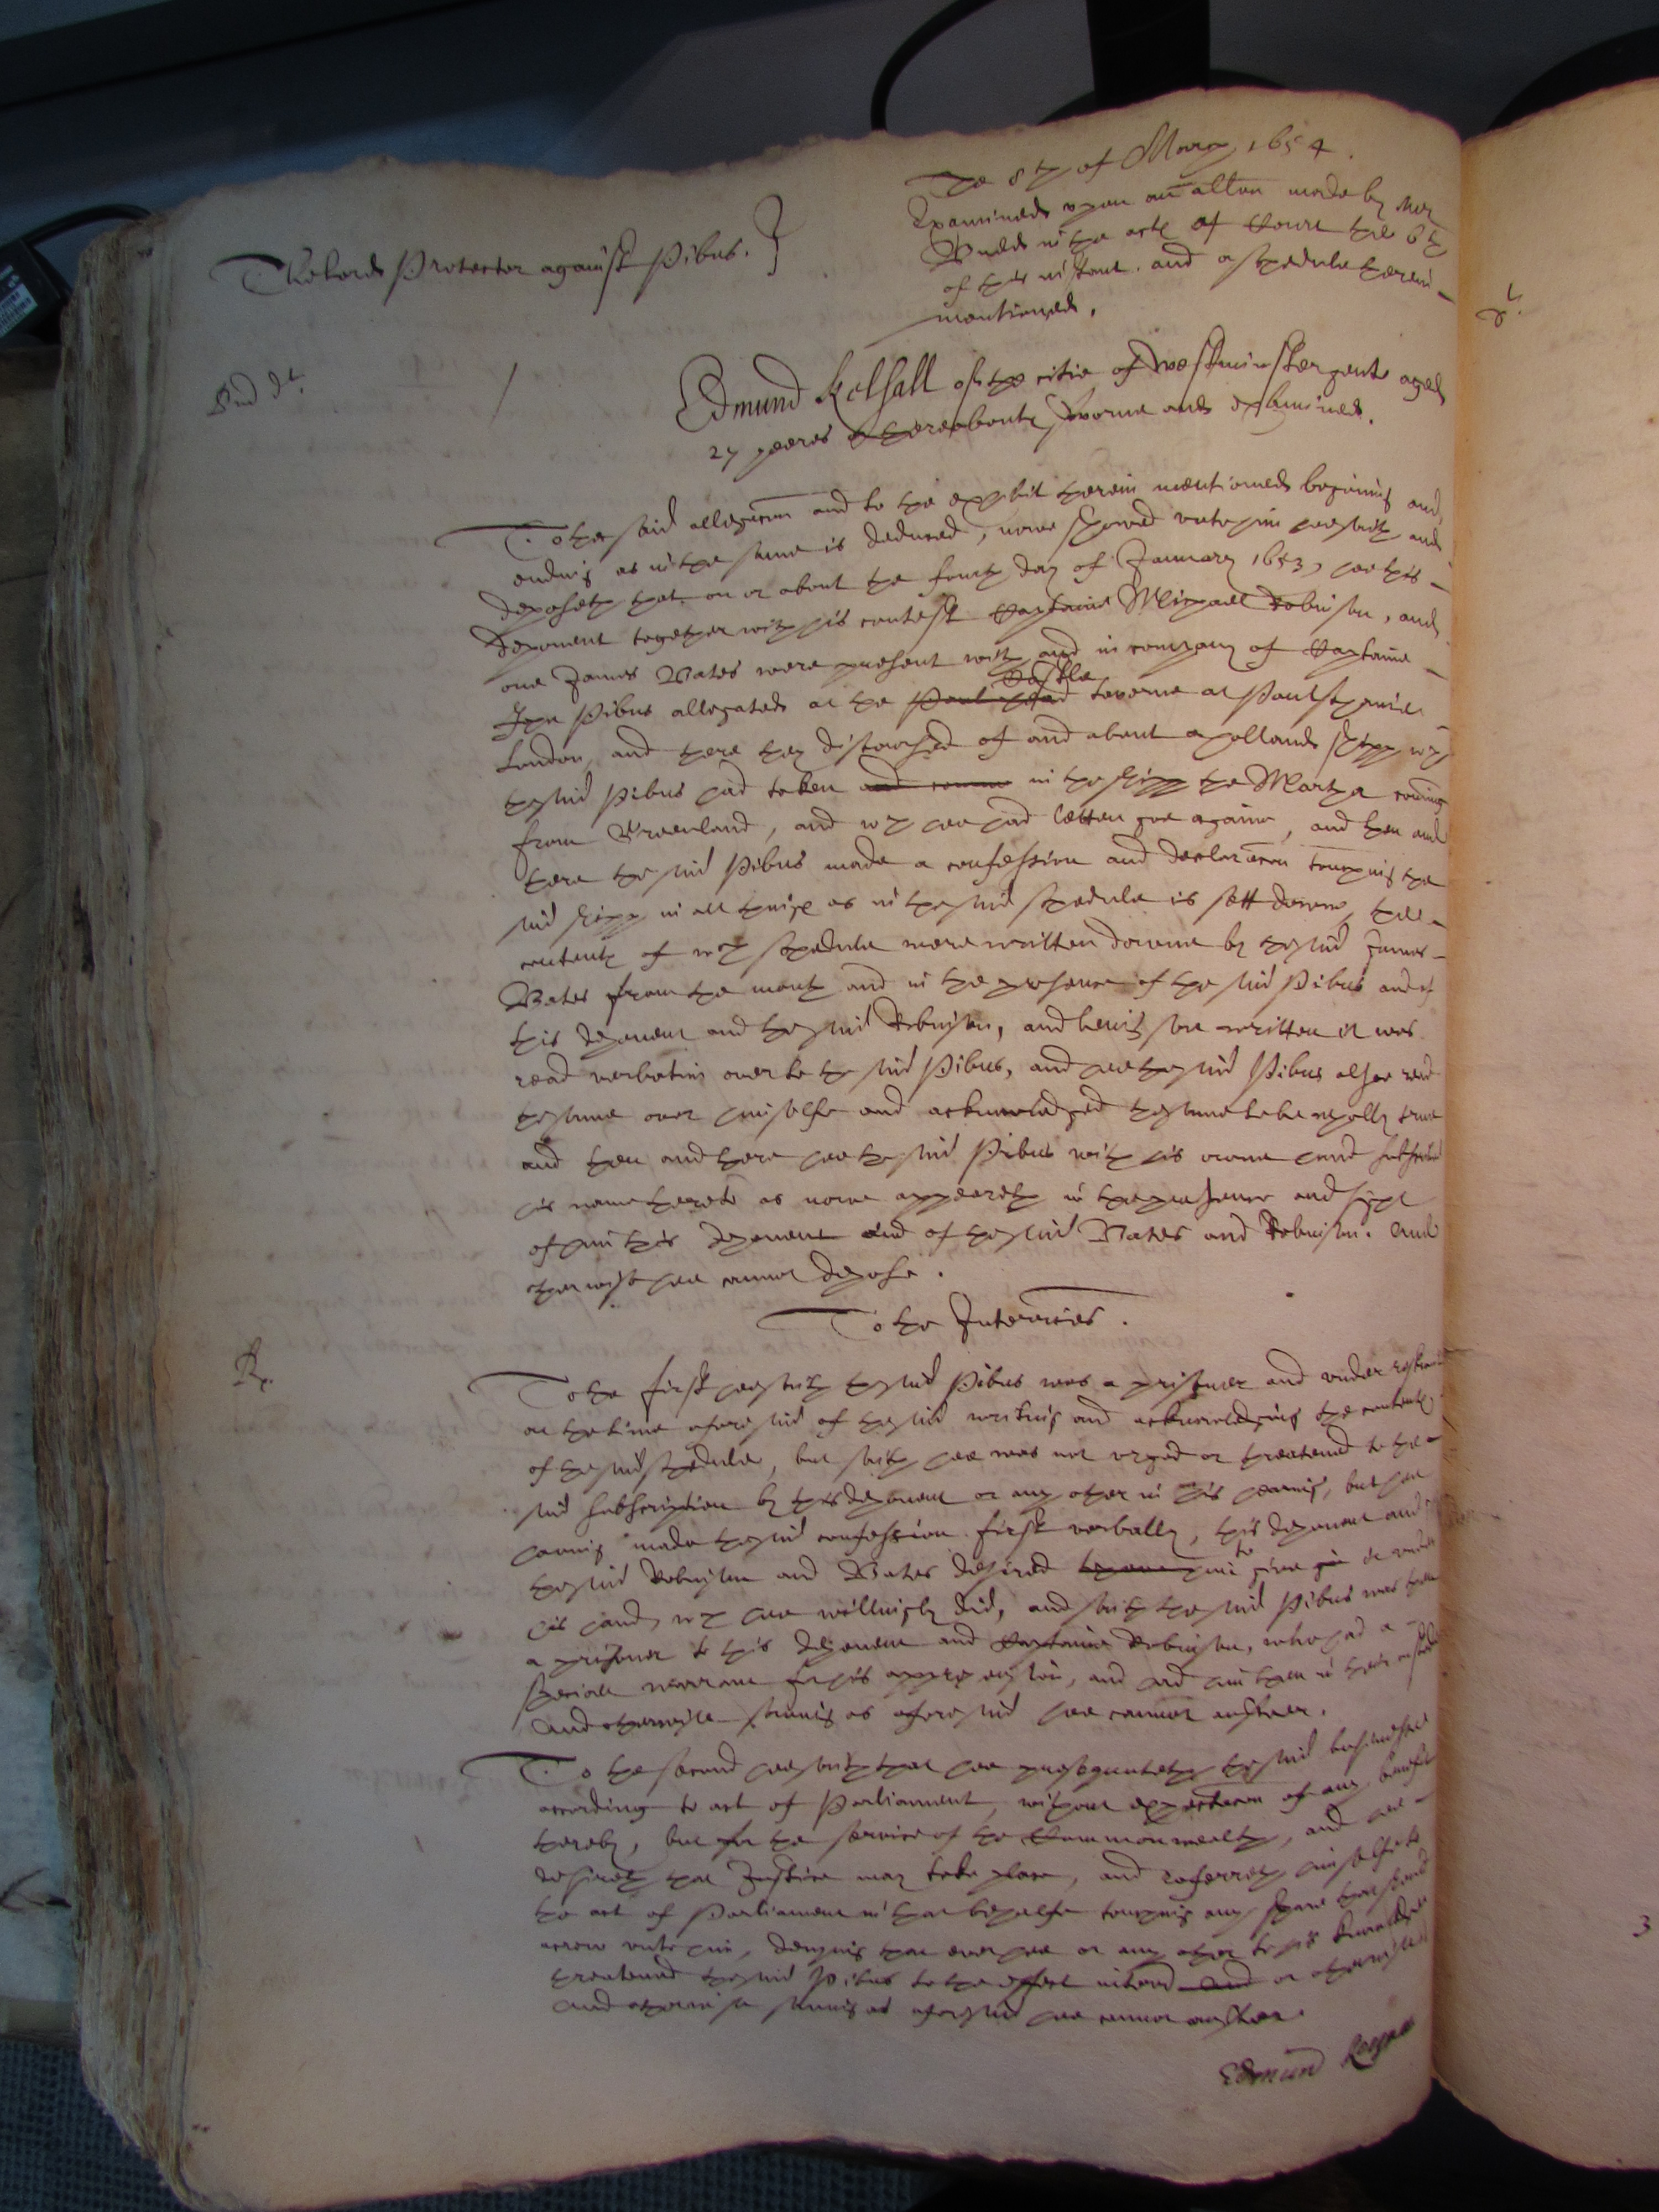 The 8th of March 1654.
Examined upon an allon made by Mr
Budd in the acts of Court the 6th
of this instant. and a schedule therein
mentioned.
The Lord Protector against Pibus.
Edmund Kelsall of the citie of Westminster gent aged
27 yeeres or thereabouts sworne and examined.
To the said allegacon and to the exhibit therein mentioned begining and
ending as in the same is deduced, nowe shewed unto him hee saith and
deposeth that on or about the fourth day of January 1653, hee this
deponent together with his contest Captaine Michael Robinson, and
one James Bates were present with and in company of Captaine
John Pibus allegated at the Paul head Castle taverne at Pauls chaine
London, and there they discoursed of and about a hollands shipp wch
the said Pibus had taken and in the shipp the Martha coming
from Greenland, and wch hee had letten goe againe, and then and
there the said Pibus made a confession and declaracon touching the
said shipp in all things as in the said schedule is sett downe, the
contents of wch schedule were written downe by the said James
Bates from the mouth and in the presence of the said Pibus and of
this deponent and the said Robinson, and being soe written it was
read verbatim over to the said Pibus, and hee the said Pibus alsoe read
the same over himselfe and acknowledged the same to be wholly true
and then and there hee the said Pibus with his owne hand subscribed
his name thereto as nowe appeareth in the presence and sight
of him this deponent and of the said Bates and Robinson. And
otherwise hee cannot depose.
To the Interries.
Rp.
To the first hee saith the said Pibus was a prisoner and under restraint
at the time aforesaid of the said writing and acknowledging the contents
of the said schedule, but saith hee was not urged or threatened to the
said subscription by this deponent or any other in his hearing, but hee
having made the said confession first verbally, this deponent and
the said Robinson and Bates desired him to give it under
his hand, wch hee willingly did, and saith the said Pibus was then
a prisoner to this deponent and Captaine Robinson, who had a
speciall warrant for his apprehension, and had him then in their custodie
And otherwise saving as aforesaid hee cannot answer.
To the second hee saith that hee prosequuteth the said businesse
according to act of Parliament, without expectacon of any benefit
thereby, but for the service of the Commonwealth, and hee
desireth that Justice may take place, and referreth himselfe to
the act of Parliament in that behalfe touching any share that should
acrew unto him, denying that ever hee or any other to his knowledge
threatened the said Pibus to the effect interred and or otherwise
And otherwise saving as aforesaid hee cannot answer.
Edmund Kelsall